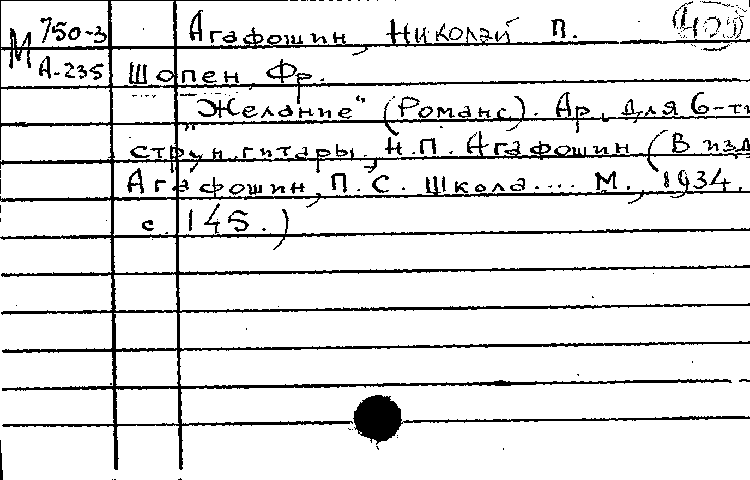 М 750-3 Агафошин, Николай П.
А-235 Шопен, Фр.
"Желание" (Романс). Ар. для 6-ти
струн. гитары, Н.П. Агафошин (В изд
Агафошин, П.С. Школа.... М., 1934.
с. 145.)